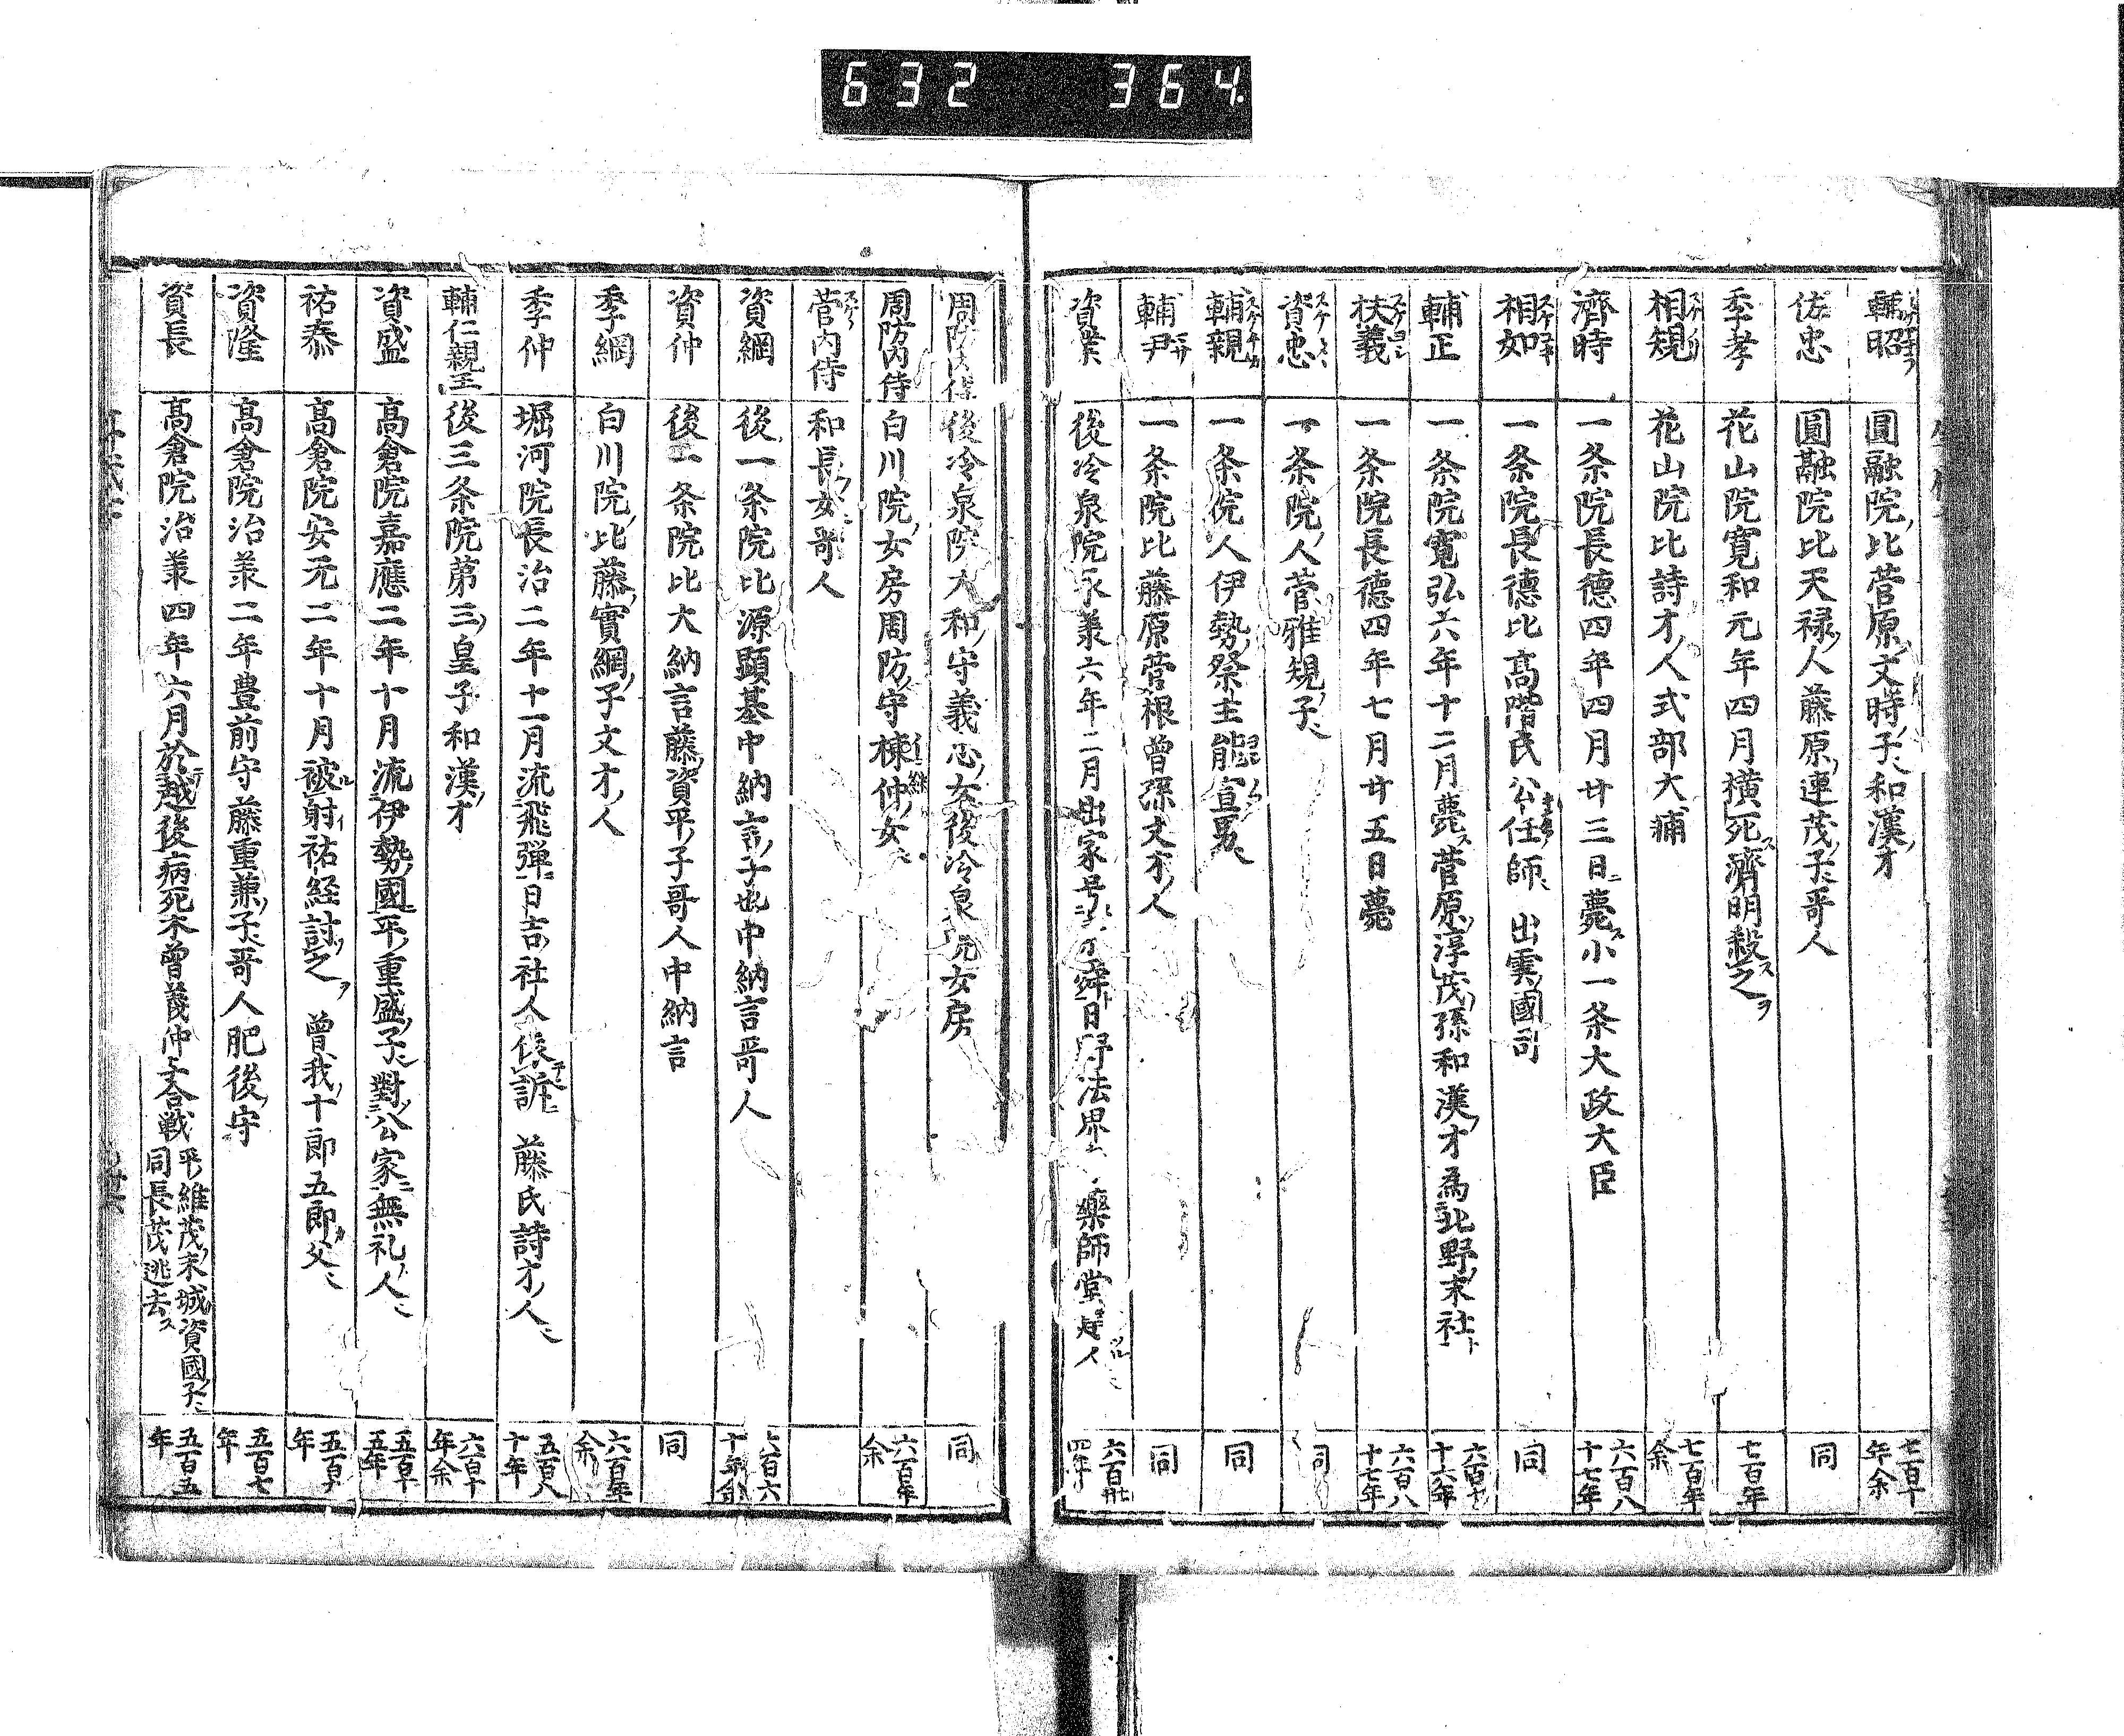 632 364.
輔昭 圓融院ノ比菅原ノ文時ノ子ニ和漢ノ才 七百十年余
佐忠 圓融院比天禄ノ人藤原ノ連茂ノ子ニ哥人 同
季孝 花山院寛和元年四月横死ス濟明殺ス之ヲ 七百年
相規 花山院比詩才ノ人式部大輔 七百年余
濟時 一条院長德四年四月廿三日ニ薨ス小一条大政大臣 六百八十七年
相如 一条院長德比髙階氏公任師 出雲ノ國司 同
輔正 一条院寛弘六年十二月薨ス菅原ノ淳茂ノ孫和漢ノ才為北野ノ末社ト 六百七十六年
扶義 一条院長德四年七月廿五日薨 六百八十七年
資忠 一条院ノ人菅雅規ノ子ニ 同
輔親 一条院ノ人伊勢ノ祭主能宣男ニ 同
輔尹 一条院比藤原菅根曽孫文才ノ人 同
資業 後冷泉院永羕六年二月出家号 日野法界 藥師堂 人 六百卅四年
周防内侍 後冷泉院大和ノ守義忠ノ女後冷泉院女房 同
周防内侍 白川院ノ女房周防ノ守棟仲ノ女ニ 六百年余
菅内侍 和長ノ女ニ哥人
資綱 後一条院比源顕基中納言ノ子也中納言哥人 六百六十年余
資仲 後一条院比大納言藤ノ資平ノ子哥人中納言 同
季綱 白川院ノ比藤ノ實綱ノ子文才ノ人 六百年余
季仲 堀河院長治二年十一月流飛弾ニ日吉ノ社人依テ訴ニ 藤氏詩才ノ人ニ 五百八十年
輔仁親王 後三条院第三ノ皇子和漢ノ才 六百十年余
資盛 髙倉院嘉應二年十月流伊勢ノ國ニ平ノ重盛ノ子ニ對公家ニ無礼ノ人ニ 五百十五年
祐泰 髙倉院安元二年十月被ル射祐経討ツ之ヲ 曽我ノ十郎五郎カ父ニ 五百九年
資隆 髙倉院治羕二年豊前守藤重兼ノ子ニ哥人肥後ノ守 五百七年
資長 髙倉院治羕四年六月於越後病死木曽義仲ト合戦 平ノ維茂ノ末城ノ資國ノ子ニ 同長茂逃去ス 五百五年